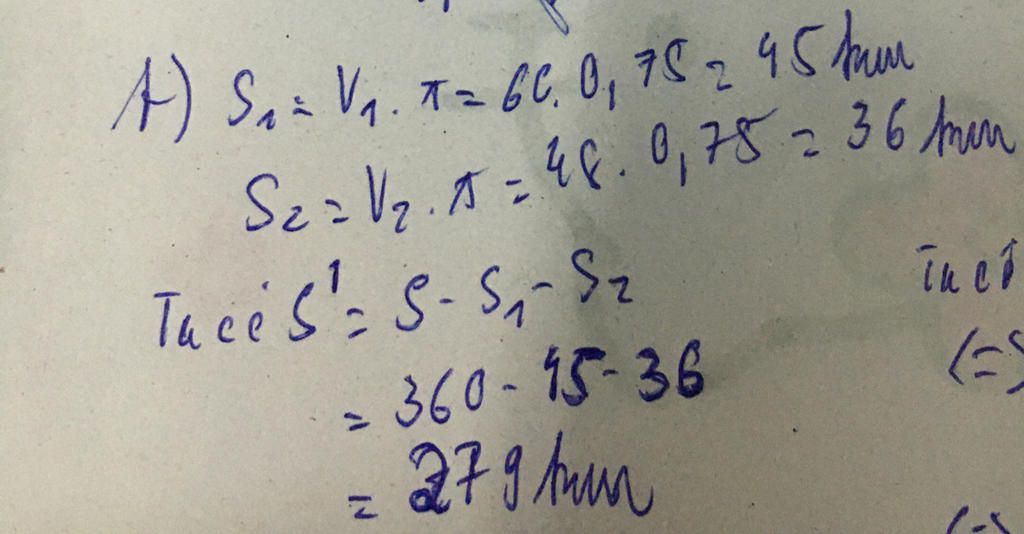 A) S₁ = V₁ . t = 60 . 0,75 = 45 km
S₂ = V₂ . t = 48 . 0,75 = 36 km
Ta có S' = S - S₁ - S₂
Ta có
= 360 - 45 - 36
(=) S
= 279 km
(=)